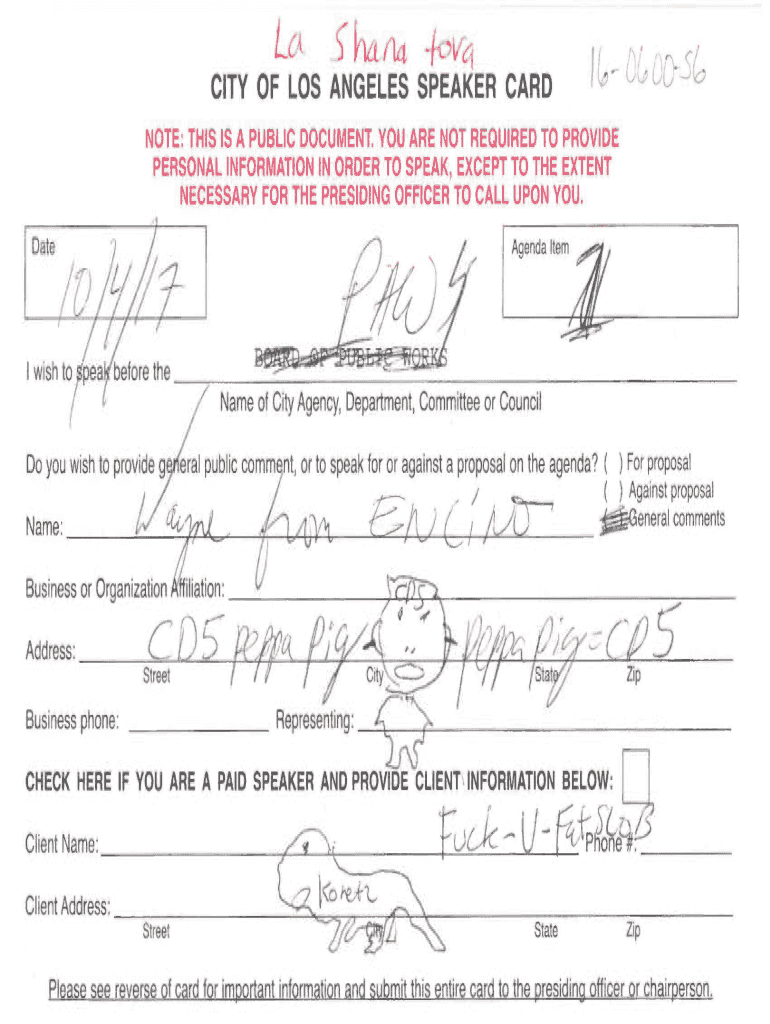 La Shana tova
16-0600-S6
CITY OF LOS ANGELES SPEAKER CARD
NOTE: THIS IS A PUBLIC DOCUMENT. YOU ARE NOT REQUIRED TO PROVIDE
PERSONAL INFORMATION IN ORDER TO SPEAK, EXCEPT TO THE EXTENT
NECESSARY FOR THE PRESIDING OFFICER TO CALL UPON YOU.
Date
10/4/17
PAWS
Agenda Item
1
BOARD OF PUBLIC WORKS
I wish to speak before the
Name of City Agency, Department, Committee or Council
Do you wish to provide general public comment, or to speak for or against a proposal on the agenda? ( ) For proposal
( ) Against proposal
General comments
Name: Wayne from ENCINO
Business or Organization Affiliation:
CD5
Address: CD5 peppa pig peppa pig = CD5
Street City State Zip
Business phone: Representing:
CHECK HERE IF YOU ARE A PAID SPEAKER AND PROVIDE CLIENT INFORMATION BELOW:
Fuck-U-Fat SLOB
Client Name: Phone #:
Koretz
Client Address:
Street City State Zip
Please see reverse of card for important information and submit this entire card to the presiding officer or chairperson.